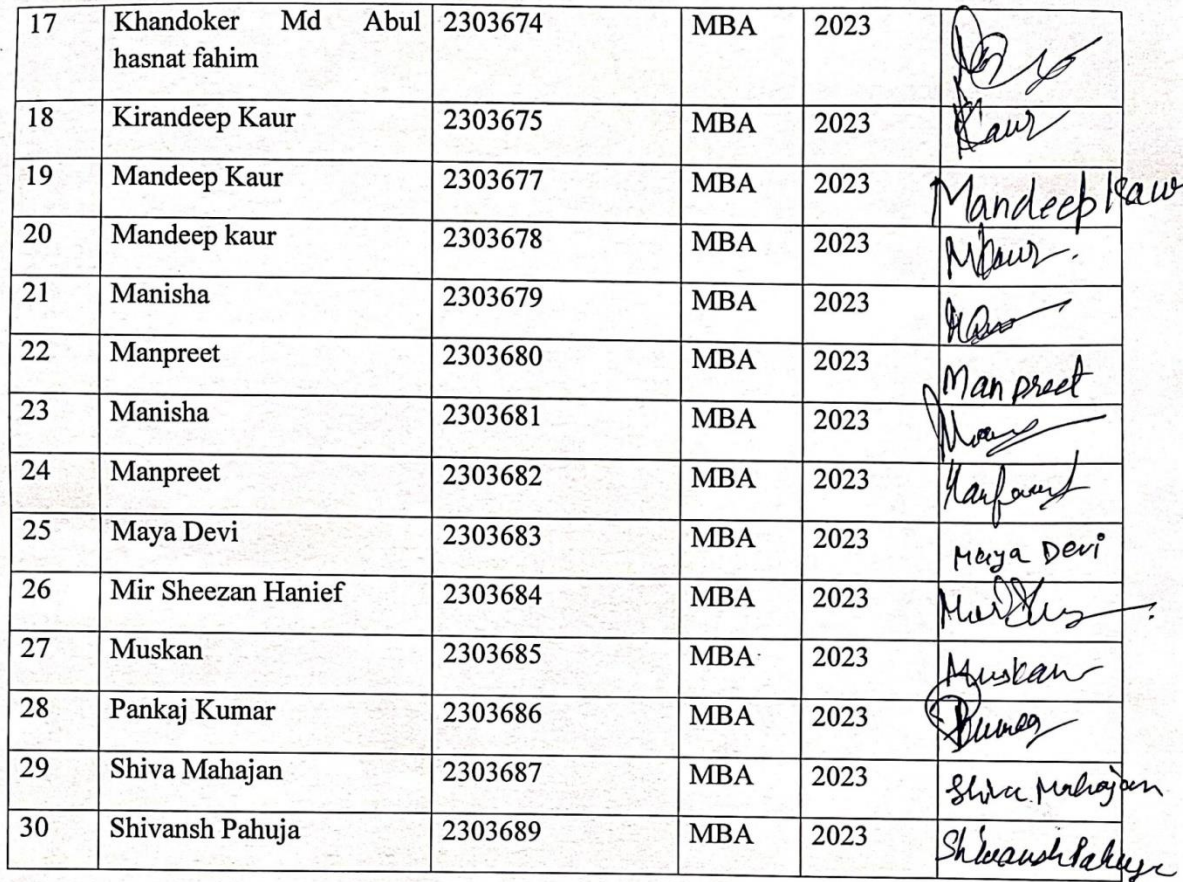 17 Khandoker Md Abul 2303674 MBA 2023
hasnat fahim
18 Kirandeep Kaur 2303675 MBA 2023 Kaur
19 Mandeep Kaur 2303677 MBA 2023 Mandeep Kaur
20 Mandeep kaur 2303678 MBA 2023 MKaur.
21 Manisha 2303679 MBA 2023
22 Manpreet 2303680 MBA 2023 Manpreet
23 Manisha 2303681 MBA 2023
24 Manpreet 2303682 MBA 2023
25 Maya Devi 2303683 MBA 2023 Maya Devi
26 Mir Sheezan Hanief 2303684 MBA 2023
27 Muskan 2303685 MBA 2023 Muskan
28 Pankaj Kumar 2303686 MBA 2023
29 Shiva Mahajan 2303687 MBA 2023 Shiva Mahajan
30 Shivansh Pahuja 2303689 MBA 2023 Shivansh Pahuja